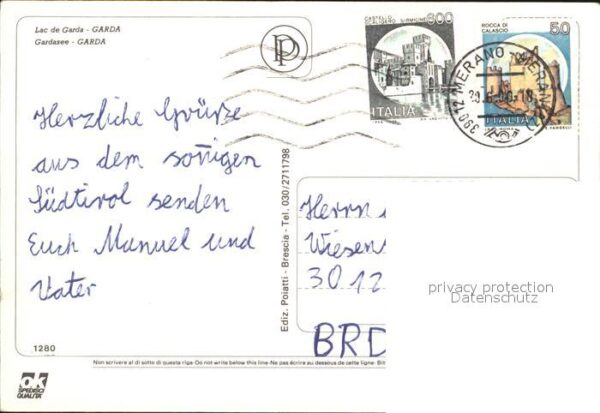 Lac de Garda - GARDA
Gardasee - GARDA
Herzliche Grüsze
aus dem sonnigen
Südtirol senden
Euch Manuel und
Vater
1280
OK
SPEDISCI
QUALITA'
Ediz. Poiatti - Brescia - Tel. 030/2711798
P
800
ITALIA
ROCCA DI
CALASCIO
50
ITALIA
39012 MERANO MERANO
Herrn
Wiesen
3012
BRD
privacy protection
Datenschutz
Non scrivere al di sotto di questa riga-Do not write below this line-Ne pas écrire au dessous de cette ligne. Bit